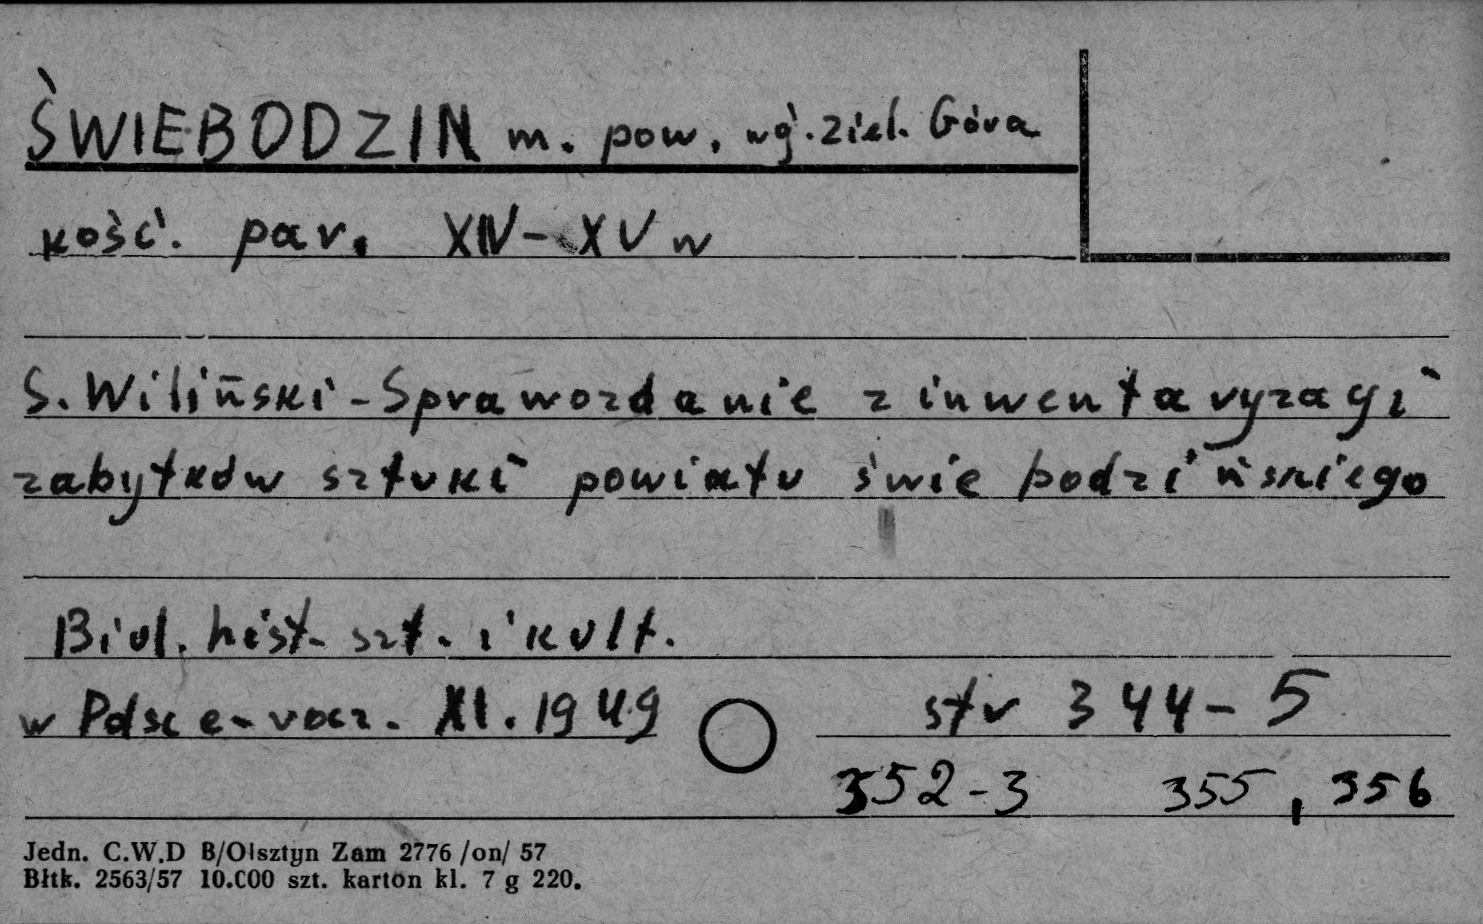 ŚWIEBODZIN m. pow. wg. Ziel. Góra
kość. par. XIV-XV w
S. Wiliński - Sprawozdanie z inwentaryzacji
zabytków sztuki powiatu świebodzińskiego
Biul. hist. szt. i kult.
w Polsce - rocz. XI. 1949
str 344-5
352-3 355, 356
Jedn. C.W.D B/Olsztyn Zam 2776 /on/ 57
Błtk. 2563/57 10.000 szt. karton kl. 7 g 220.